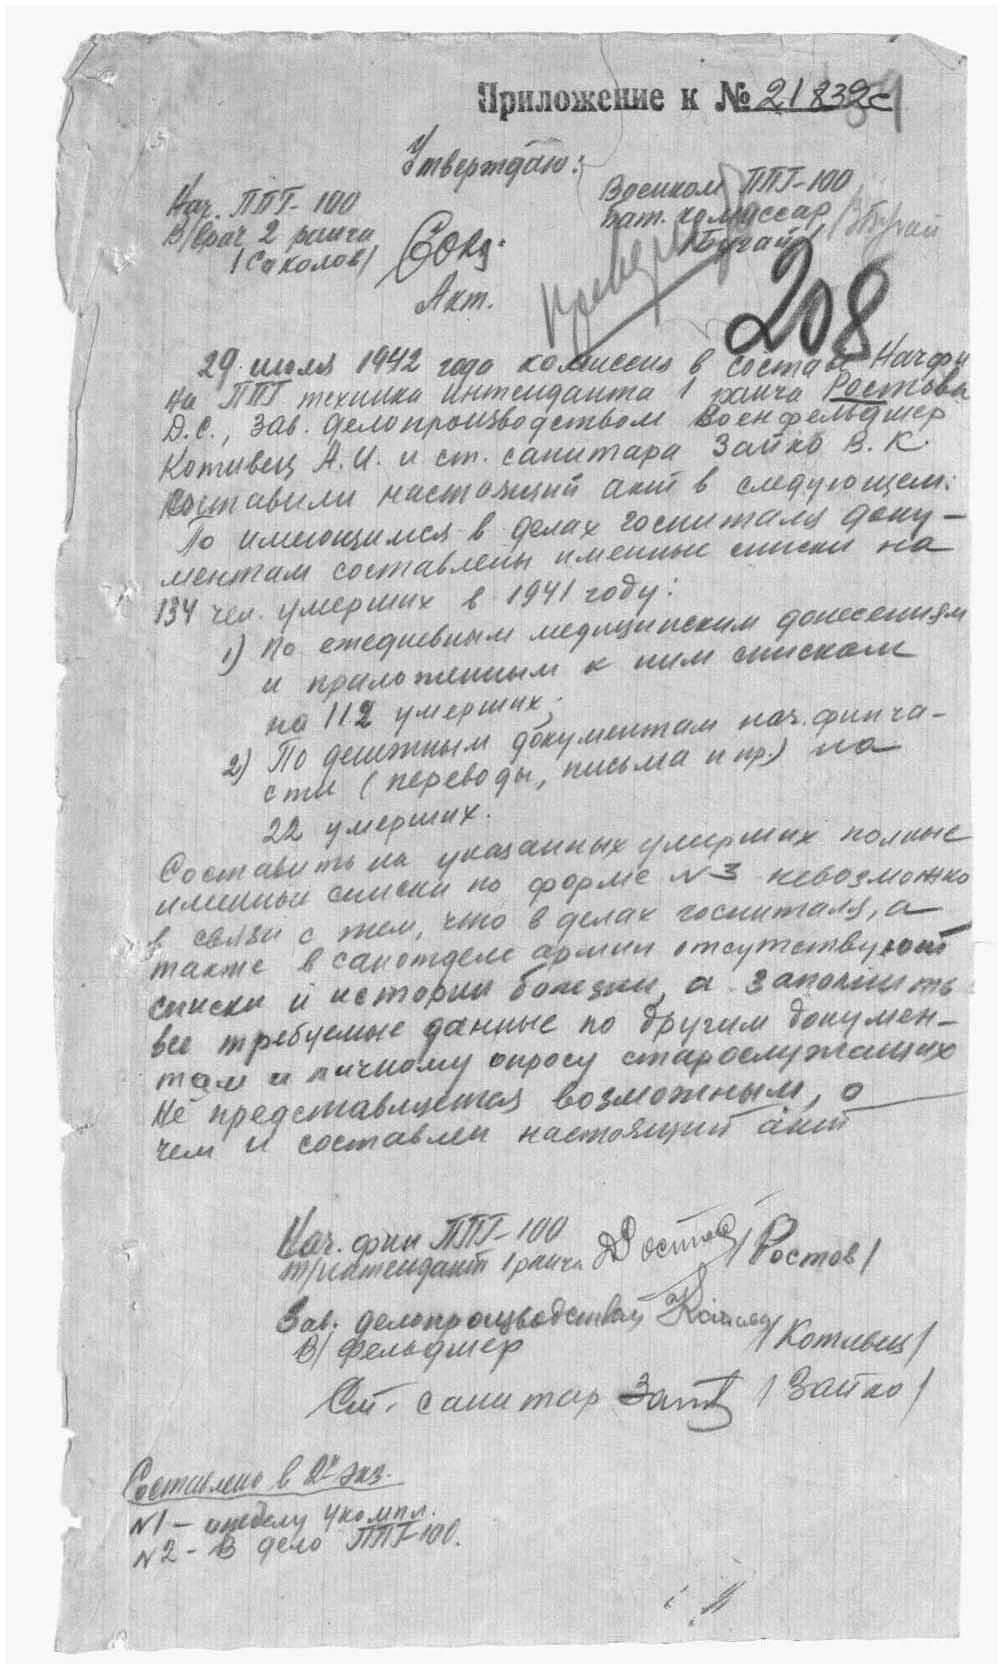 Приложение к № 21832с
Утверждаю:
Нач. ППГ-100
В/врач 2 ранга
/Соколов/
Военком ППГ-100
бат. комиссар
/Бугай/
Акт.
208
29 июля 1942 года комиссия в составе Начфи
на ППГ техника интенданта 1 ранга Ростова
Д.С., зав. делопроизводством Военфельдшер
Котивец А.И. и ст. санитара Зайко В.К.
составили настоящий акт в следующем:
По имеющимся в делах госпиталя доку-
ментам составлены именные списки на
134 чел. умерших в 1941 году:
1) По ежедневным медицинским донесениям
и приложенным к ним спискам
на 112 умерших;
2) По денежным документам нач. финча-
сти (переводы, письма и пр.) на
22 умерших.
Составить на указанных умерших полные
именные списки по форме №3 невозможно
в связи с тем, что в делах госпиталя, а
также в санотделе армии отсутствуют
списки и истории болезни, а заполнить
все требуемые данные по другим докумен-
там и личному опросу старослужащих
не представляется возможным, о
чем и составлен настоящий акт
Нач. фин ППГ-100
т/интендант 1 ранга /Ростов/
Зав. делопроизводством
В/фельдшер /Котивец/
Ст. санитар /Зайко/
Составлено в 2х экз.
№1 - отделу укомпл.
№2 - В дело ППГ-100.